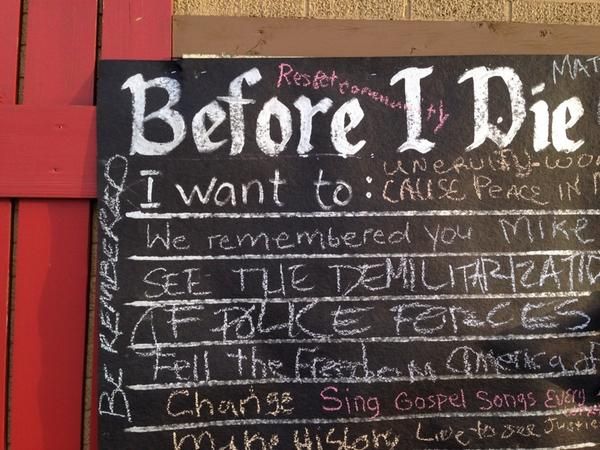 Before I Die
Respect community
I want to:
CAUSE PEACE IN
BE REMEMBERED
We remembered you MIKE
SEE THE DEMILITARIZATIO
OF POLICE FORCES
Fell the Freedom America of
Change Sing Gospel Songs EVERY
Make History Live to see Justice